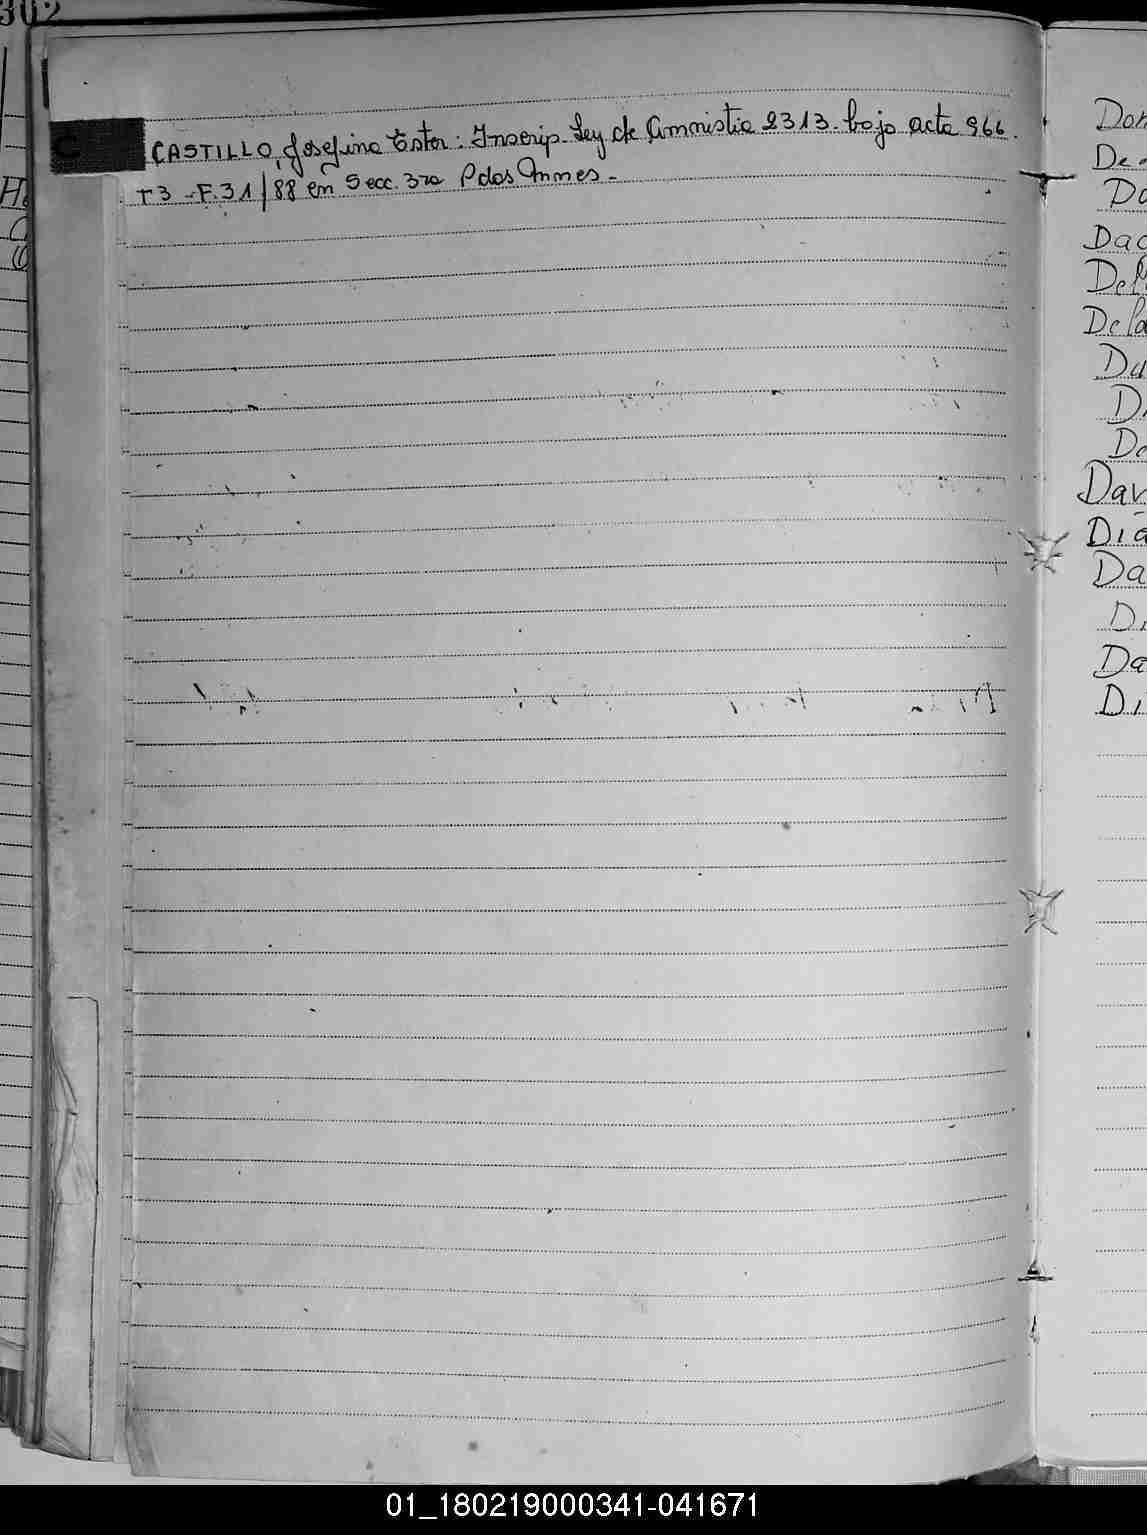 302
C
CASTILLO, Josefina Ester: Inscrip. Ley de Amnistia 2313. bajo acta 966.
T3 - F.31/88 en Secc. 3ra Pdos Anmes.-
Da
De
Da
Dia
Da
Di
Da
Di
01_180219000341-041671